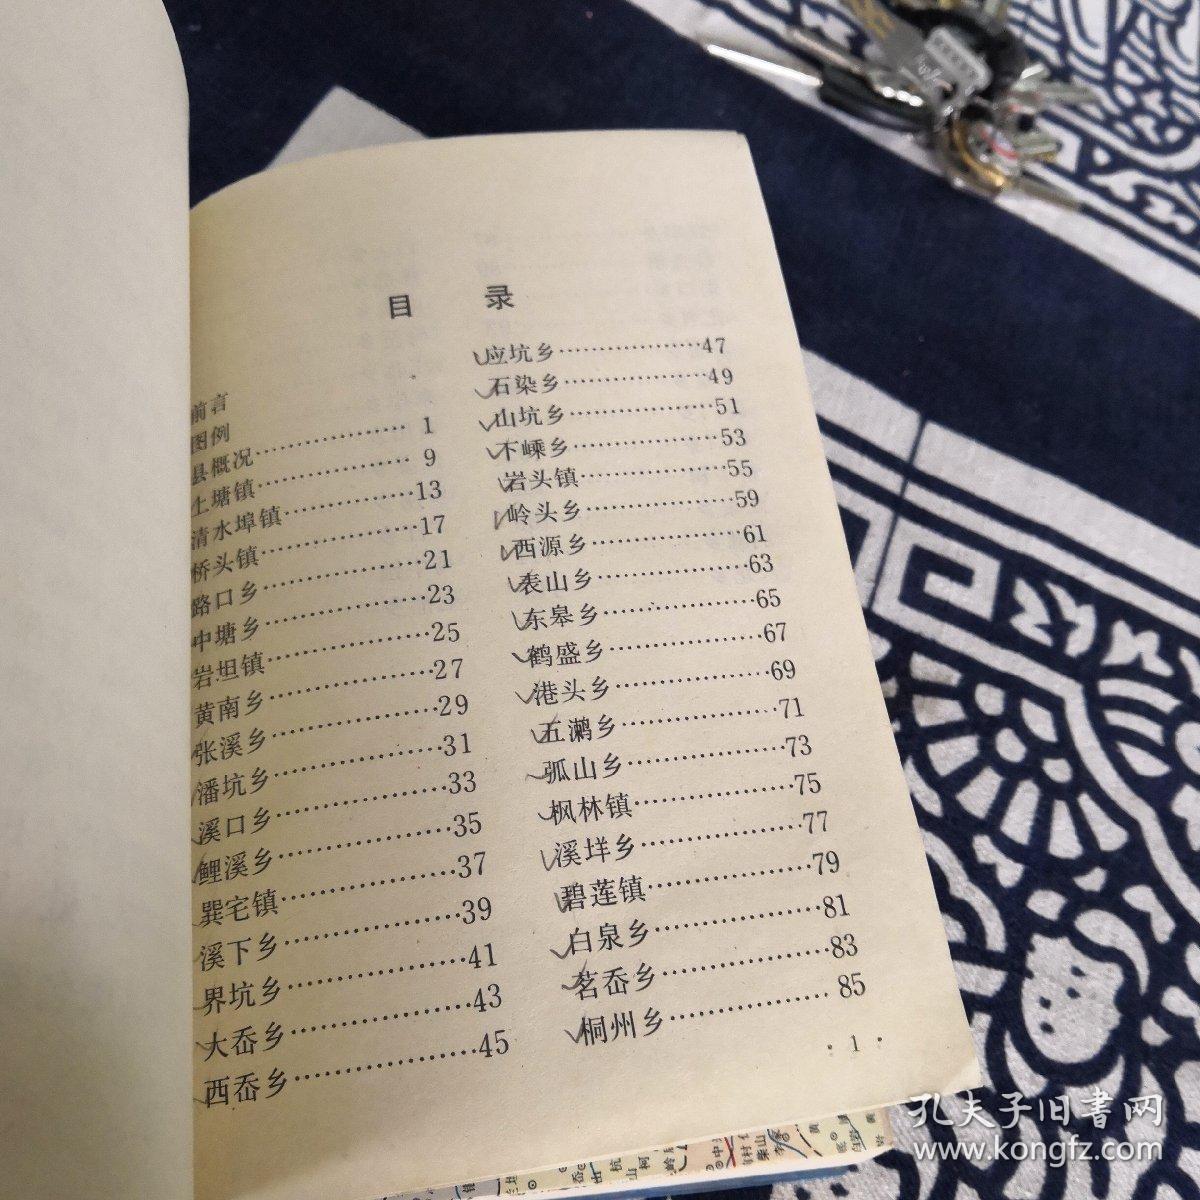 目 录
前言
图例
县概况……………… 1
上塘镇……………… 9
清水埠镇……………13
桥头镇………………17
路口乡………………21
中塘乡………………23
岩坦镇………………25
黄南乡………………27
张溪乡………………29
潘坑乡………………31
溪口乡………………33
鲤溪乡………………35
巽宅镇………………37
溪下乡………………39
界坑乡………………41
大岙乡………………43
西岙乡………………45
应坑乡………………47
石染乡………………49
山坑乡………………51
下嵊乡………………53
岩头镇………………55
岭头乡………………59
西源乡………………61
表山乡………………63
东皋乡………………65
鹤盛乡………………67
港头乡………………69
五 乡………………71
孤山乡………………73
枫林镇………………75
溪垟乡………………77
碧莲镇………………79
白泉乡………………81
茗岙乡………………83
桐州乡………………85
· 1 ·
孔夫子旧书网
www.kongfz.com